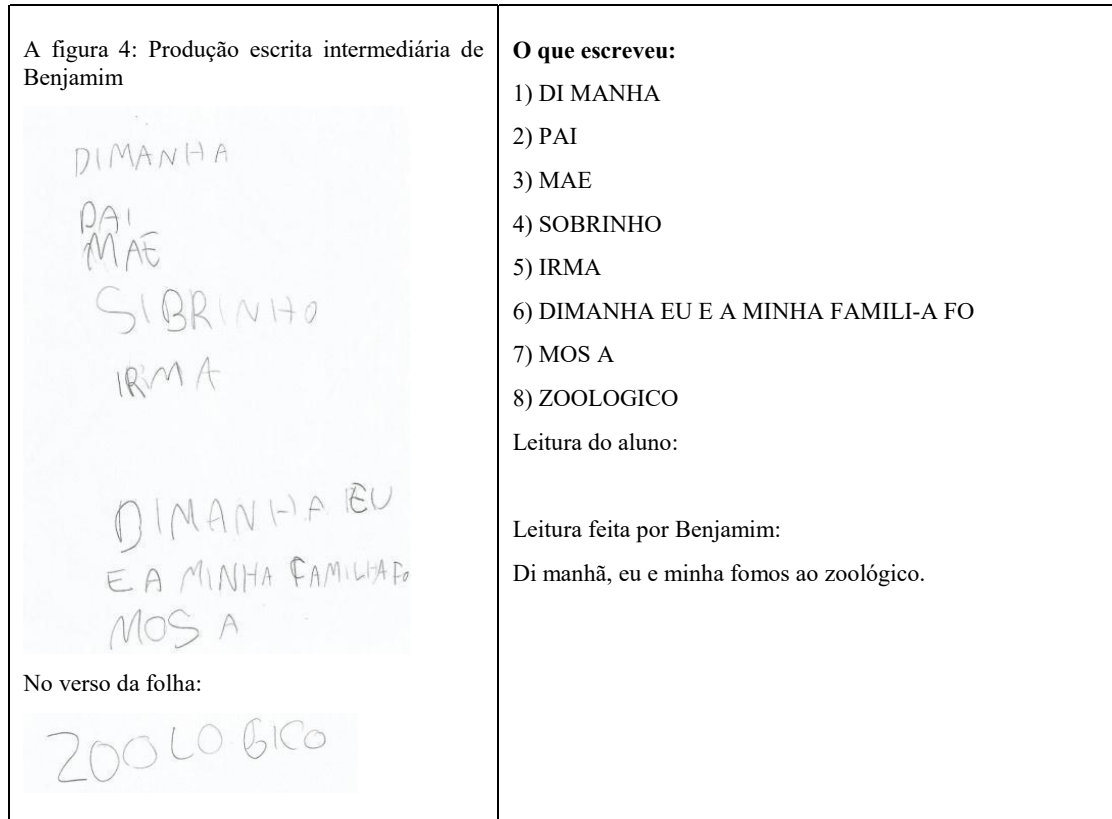 A figura 4: Produção escrita intermediária de
Benjamim
DIMANHA
PAI
MAE
SIBRINHO
IRMA
DIMANHA EU
E A MINHA FAMILHAFO
MOS A
No verso da folha:
ZOOLOGICO
O que escreveu:
1) DI MANHA
2) PAI
3) MAE
4) SOBRINHO
5) IRMA
6) DIMANHA EU E A MINHA FAMILI-A FO
7) MOS A
8) ZOOLOGICO
Leitura do aluno:
Leitura feita por Benjamim:
Di manhã, eu e minha fomos ao zoológico.